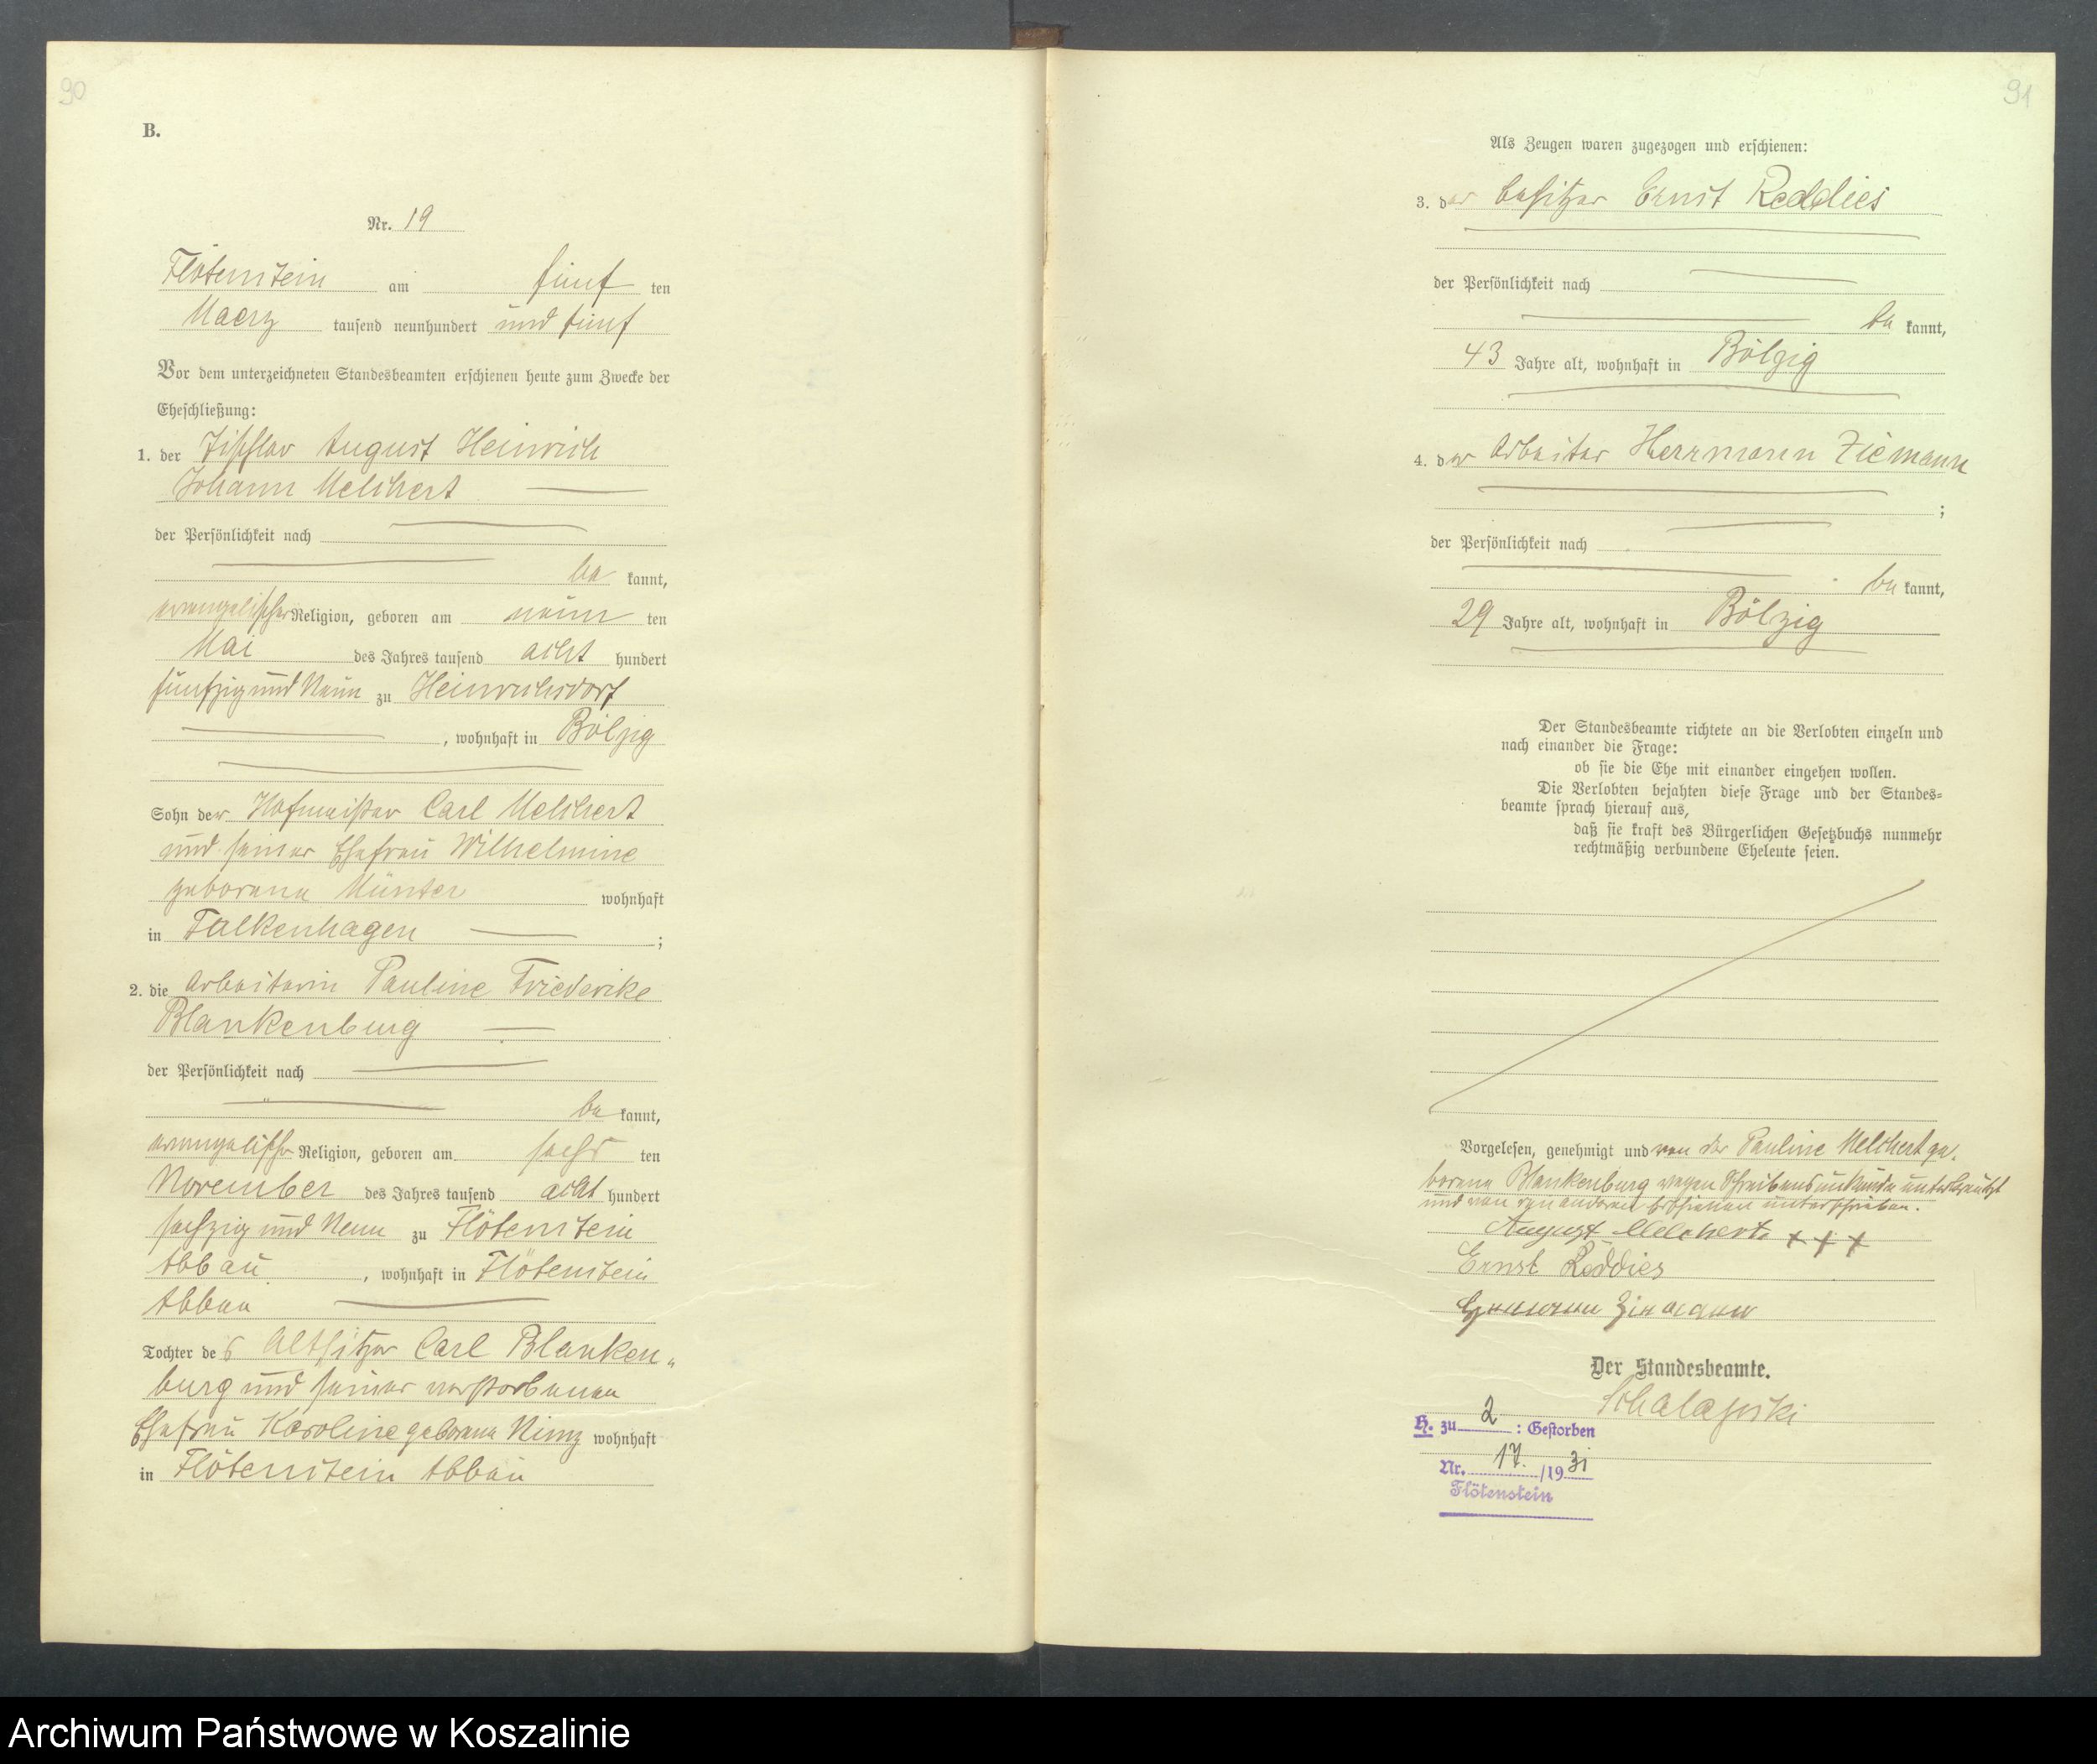 90
B.
Nr. 19
Flötenstein am fünf ten
Maerz tausend neunhundert und fünf
Vor dem unterzeichneten Standesbeamten erschienen heute zum Zwecke der
Eheschließung:
1. der Tischler August Heinrich
Johann Melchert
der Persönlichkeit nach
be kannt,
evangelischer Religion, geboren am neun ten
Mai des Jahres tausend acht hundert
fünfzig und Neun zu Heinrichsdorf
, wohnhaft in Bölzig
Sohn der Hofmeister Carl Melchert
und seiner Ehefrau Wilhelmine
geborene Münter wohnhaft
in Falkenhagen ;
2. die Arbeiterin Pauline Friederike
Blankenburg
der Persönlichkeit nach
be kannt,
evangelischer Religion, geboren am sechs ten
November des Jahres tausend acht hundert
sechzig und Neun zu Flötenstein
Abbau , wohnhaft in Flötenstein
Abbau
Tochter des Altsitzer Carl Blanken„
burg und seiner verstorbenen
Ehefrau Karoline geborene Nimz wohnhaft
in Flötenstein Abbau
91
Als Zeugen waren zugezogen und erschienen:
3. der Besitzer Ernst Reddies
der Persönlichkeit nach
be kannt,
43 Jahre alt, wohnhaft in Bölzig
4. der Arbeiter Herrmann Ziemann
;
der Persönlichkeit nach
be kannt,
29 Jahre alt, wohnhaft in Bölzig
Der Standesbeamte richtete an die Verlobten einzeln und
nach einander die Frage:
ob sie die Ehe mit einander eingehen wollen.
Die Verlobten bejahten diese Frage und der Standes=
beamte sprach hierauf aus,
daß sie kraft des Bürgerlichen Gesetzbuchs nunmehr
rechtmäßig verbundene Eheleute seien.
Vorgelesen, genehmigt und von der Pauline Melchert ge„
borene Blankenburg wegen Schreibensunkunde unterkreuzt
und von den anderen Erschienen unterschrieben.
August Melchert. +++
Ernst Reddies
Hermann Ziemann
Der Standesbeamte.
H. zu 2 : Gestorben
Nr. 17. /1931
Flötenstein
Archiwum Państwowe w Koszalinie